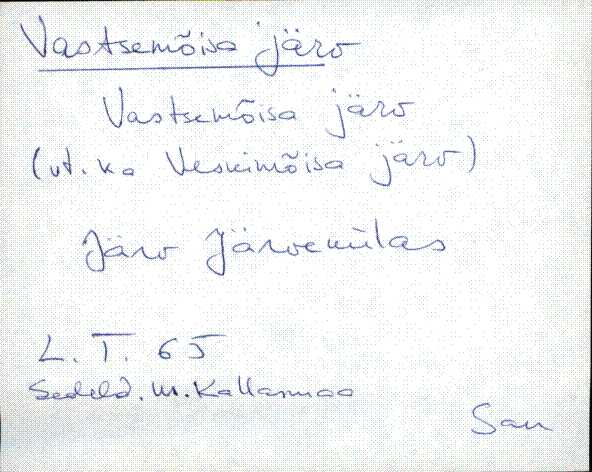 Vastsemõisa järv
Vastsemõisa järv
(vt. ka Veskimõisa järv)
Järv Järvekülas
L. T. 65
Sedeld. M. Kallasmaa
San